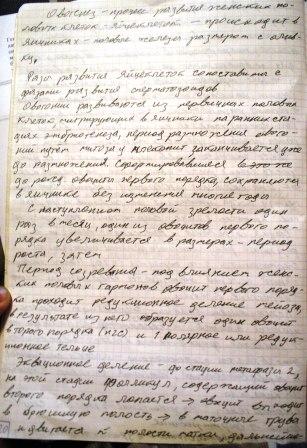 Овогенез - процесс развития женских по-
ловых клеток - яйцеклеток - происходит в
яичниках - половые железы размером с слив-
ку.
Фазы развития яйцеклеток сопоставимы с
фазами развития сперматозоидов
Овогонии развиваются из первичных половых
клеток мигрирующих в яичники на ранних ста-
диях эмбриогенеза, период размножения ового-
ний путем митоза у заканчивается уже
до размножения. Сформировавшиеся
до рожд овоциты первого порядка, сохраняются
в яичнике без изменения многие годы
С наступлением половой зрелости один
раз в месяц, один из овоцитов первого по-
рядка увеличивается в размерах - период
роста, затем
Период созревания - под влиянием женс-
ких половых гармонов овоцит первого поряд-
ка проходит редукционное деление мейоза,
в результате из него образуется один овоцит
второго порядка (n2c) и 1 полярное или редук-
ционное тельце
Эквационное деление - до стадии метафазы 2,
на этой стадии фолликул, содержащий овоцит
второго порядка лопается → овоцит выходит
в брюшную полость → в маточные трубы
и двигается к полости матки, дальнейш